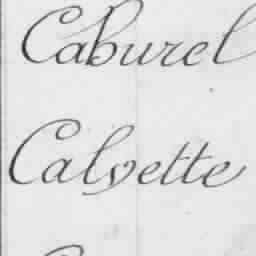 Caburel
Calvette